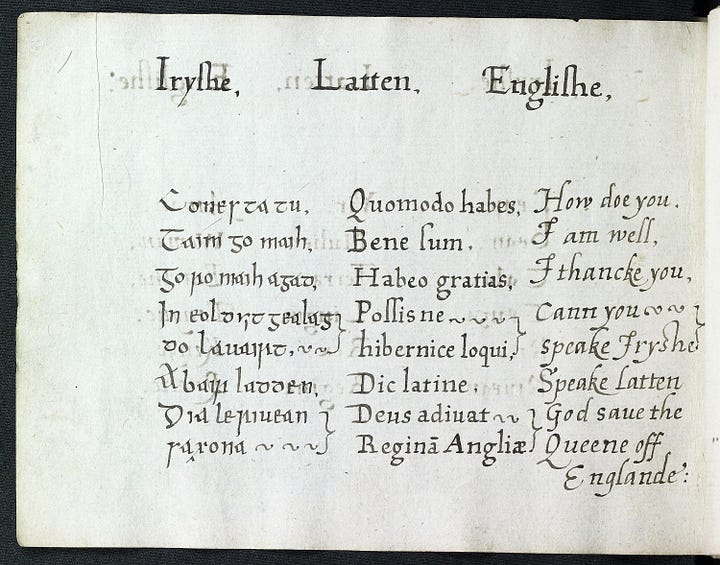 Iryshe, Latten, Englishe,
Conersta tu, Quomodo habes, How doe you.
Taim go maih, Bene sum, I am well,
Go ro maih agad, Habeo gratias, I thancke you,
In eol dyit gealag Possis ne cann you
do lauairt, hibernice loqui, speake Iryshe
Abair ladden, Dic latine, Speake Latten
Dia le riuean Deus adiuat God save the
saxona Reginā Angliæ Queene off
Englande: